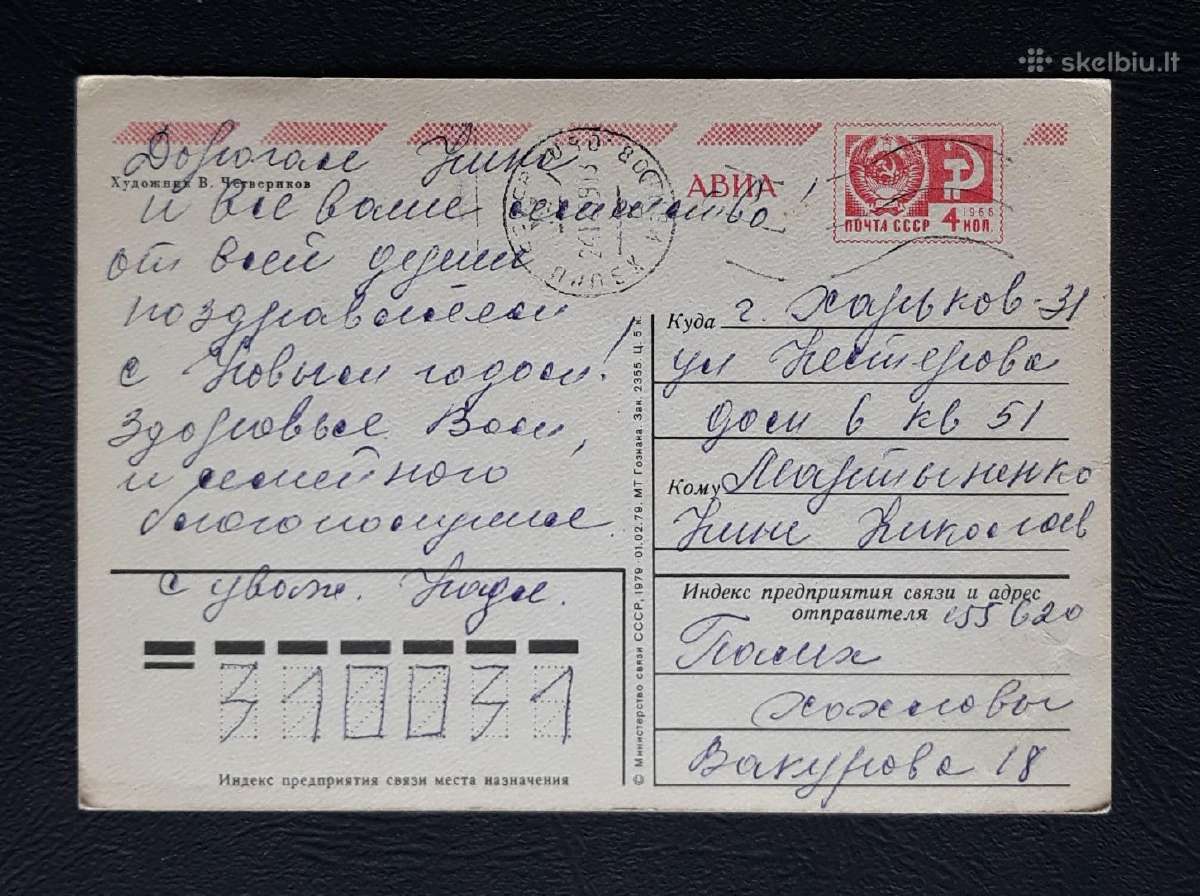 skelbiu.lt
АВИА
ПОЧТА СССР
1966
4 КОП.
Художник В. Четвериков
Дорогая Нина
и все ваше семейство
от всей души
поздравляем
с Новым годом!
Здоровья Вам,
и семейного
благополучия
с уваж. Надя.
310031
Индекс предприятия связи места назначения
© Министерство связи СССР, 1979 · 01.02.79. МТ Гознака. Зак. 2355. Ц. 5 к.
Куда г. Харьков-31
ул Нестерова
дом 6 кв 51
Кому Мартыненко
Нине Николаев
Индекс предприятия связи и адрес
отправителя 155620
Палех
Хохловы
Бакурова 18